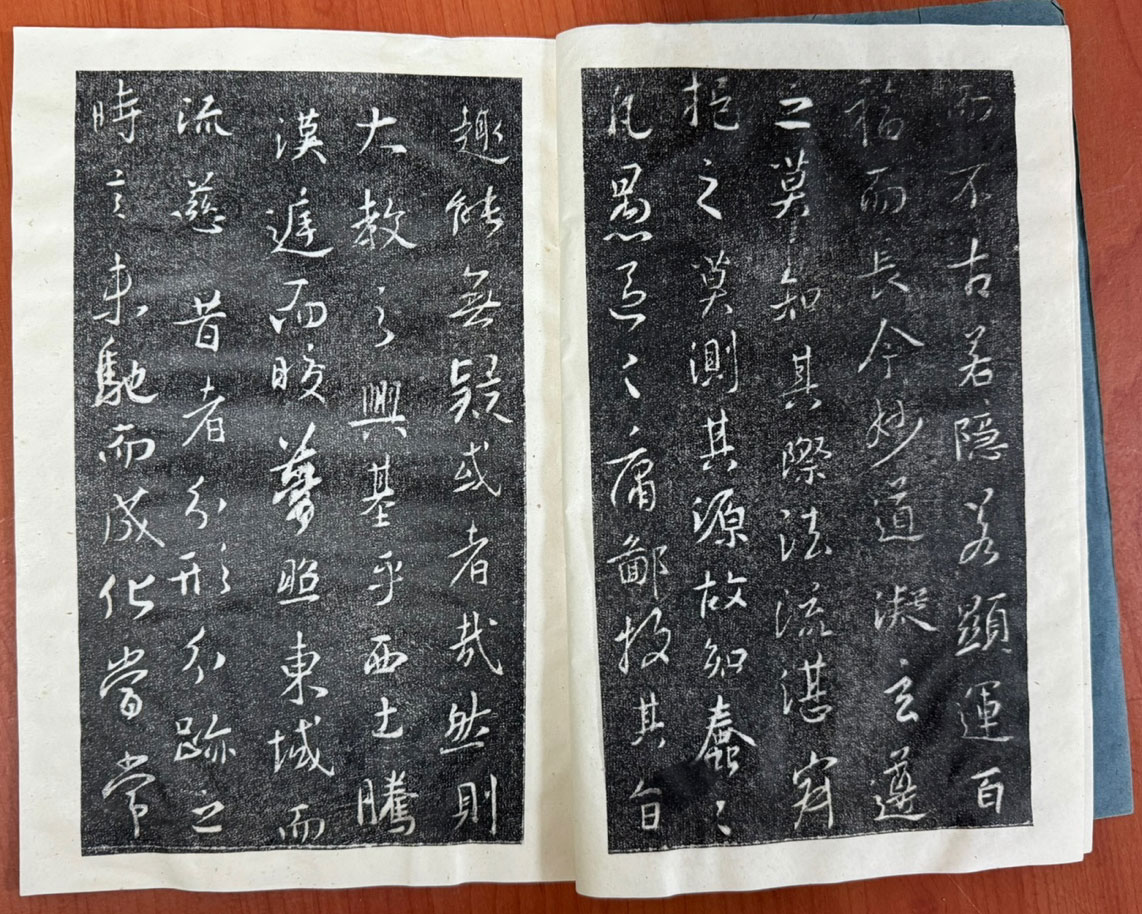 而不古若隱若顯運百
福而長今妙道凝玄遵
之莫知其際法流湛寂
挹之莫測其源故知蠢々
凡愚區々庸鄙投其旨
趣能無疑或者哉然則
大教之興基乎西土騰
漢庭而皎夢照東域而
流慈昔者分形分跡之
時言未馳而成化當常